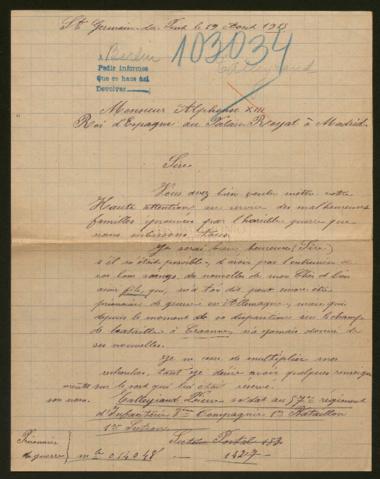 St Germain du Puch le 19 Août 1915
103034
Talleyrand
Pedir informes
Que se hace así
Devolver
Monsieur Alphonse XIII
Roi d'Espagne au Palais Royal à Madrid
Sire
Vous avez bien voulu mettre votre
Haute attention au service des malheureuses
familles éprouvées par l'horrible guerre que
nous subissons tous.
Je serai bien heureux (Sire)
s'il était possible, d'avoir par l'entremise de
nouvelles de mon cher et bien
aimé fils, qui, m'a-t-on dit peut-être
prisonnier de guerre en Allemagne, mais qui
depuis le moment de sa disparition sur le champ
de bataille à Craonne, n'a jamais donné de
ses nouvelles.
Je ne cesse de multiplier mes
tant je désire avoir quelques renseigne
ments sur le sort qui lui était réservé.
son nom. Talleyrand soldat au 57me régiment
d'Infanterie 8me Compagnie 1er Bataillon
1re Section
Secteur Postal
Prisonnier
de guerre
no 014048